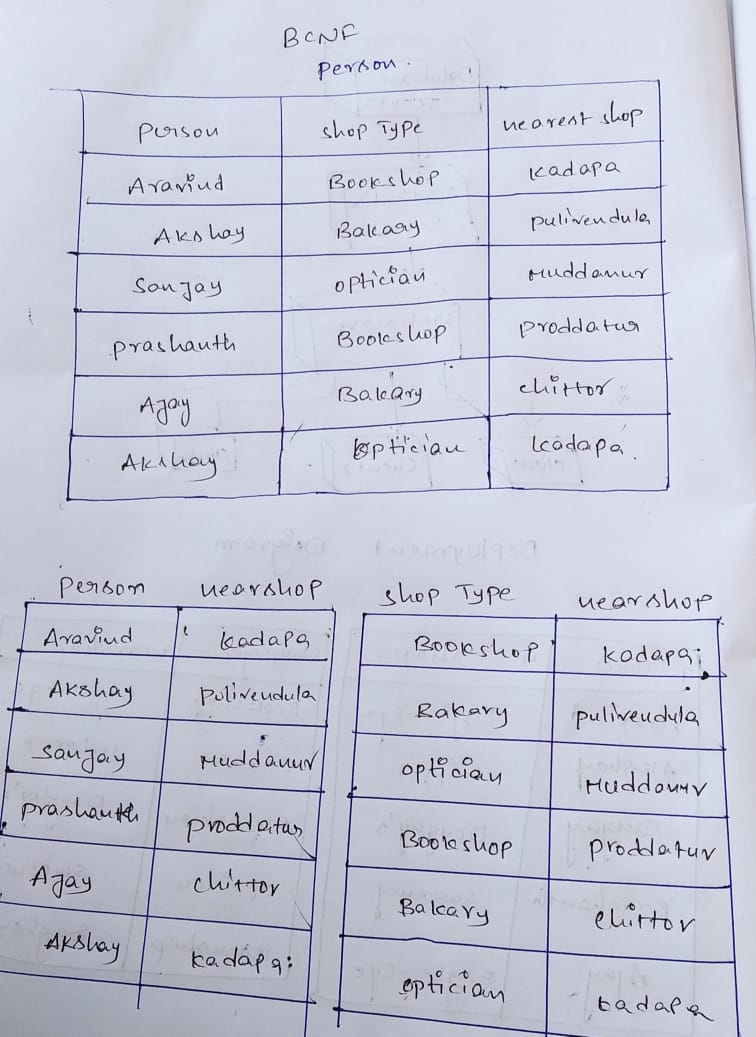 BCNF
Person.
Person shop Type nearest shop
Aravind Bookshop Kadapa
Akshay Bakary pulivendula
Sanjay optician Muddanur
prashanth Bookshop proddatur
Ajay Bakary chittor
Akshay optician kadapa.
Person nearshop
Aravind kadapa
Akshay Pulivendula
Sanjay Muddanur
prashanth proddatur
Ajay chittor
Akshay kadapa:
shop Type nearshop
Bookshop kadapa;
Bakary pulivendula
optician Muddanur
Bookshop proddatur
Bakary chittor
optician kadapa